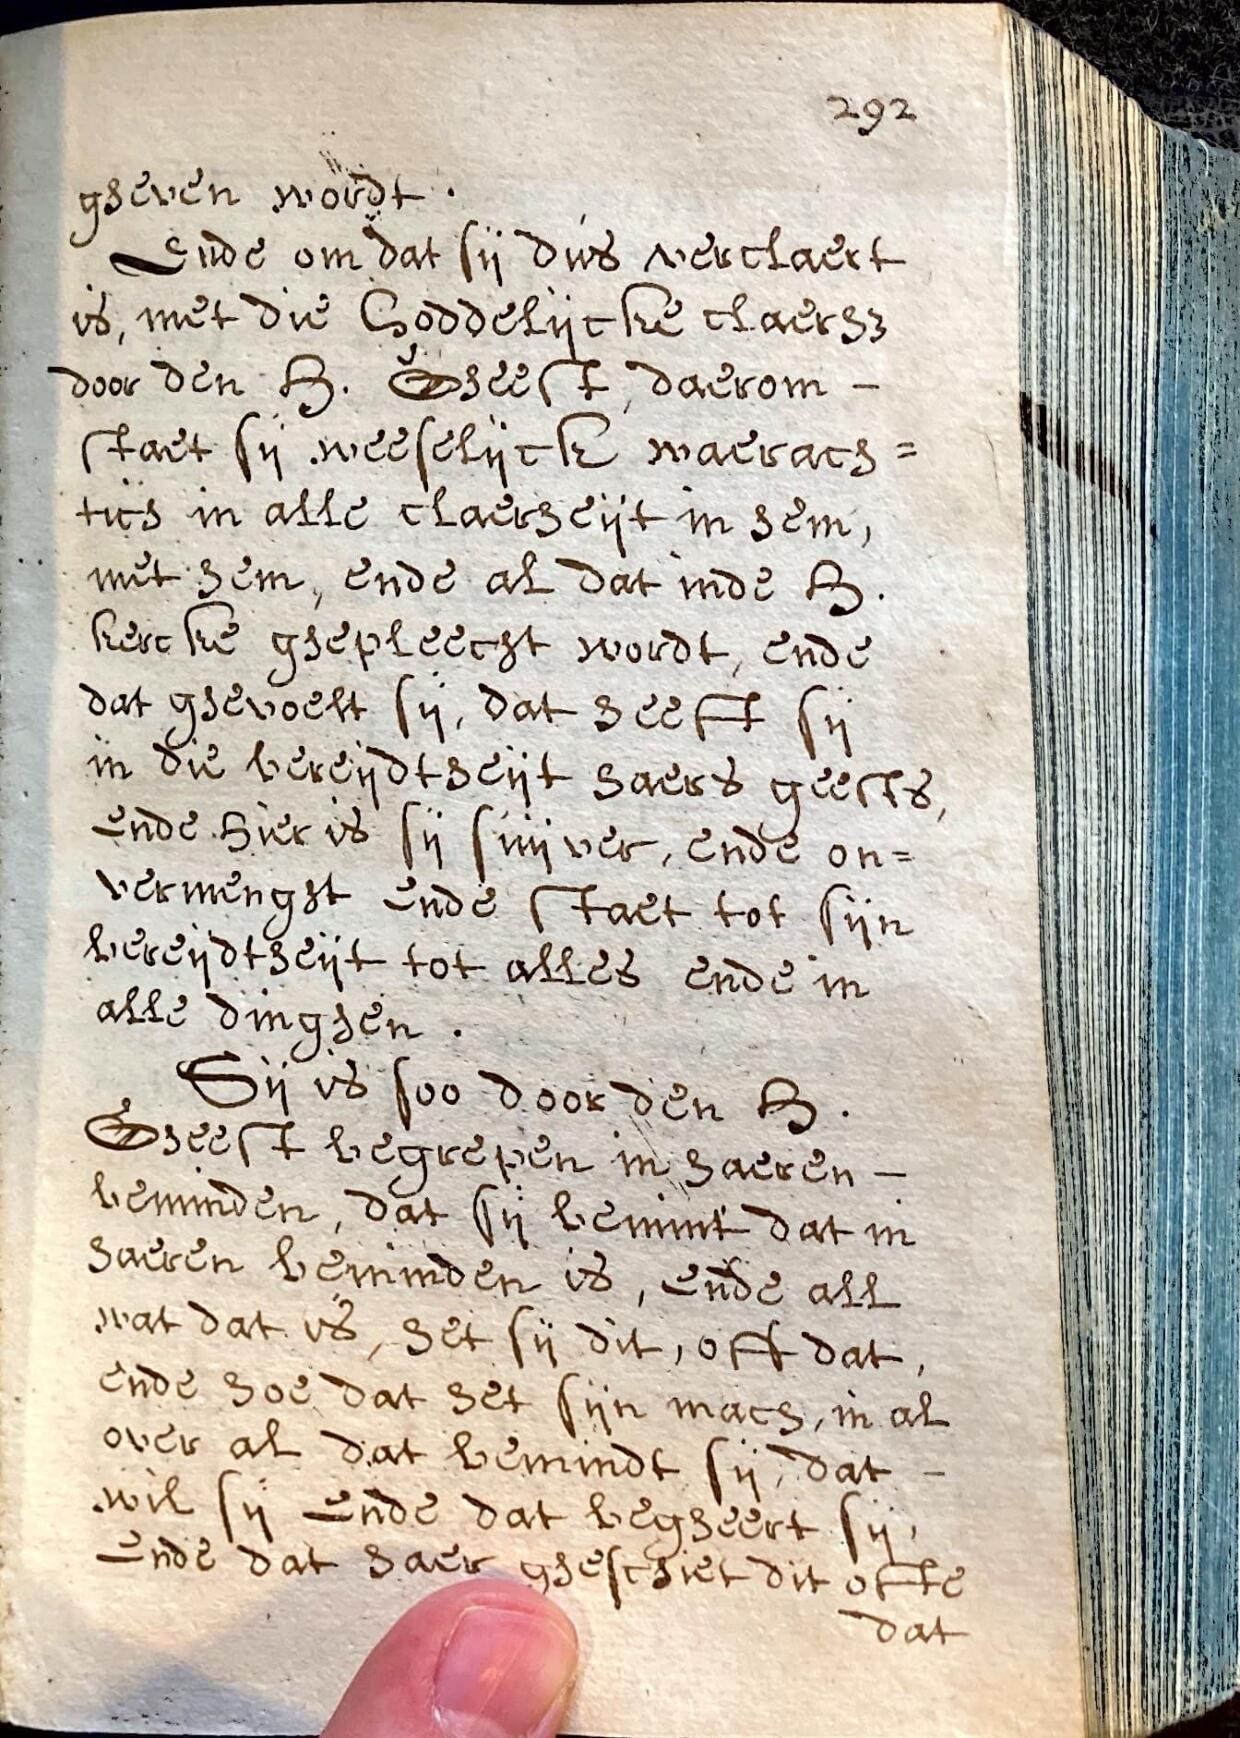 292
gheven wordt.
Ende om dat sij dus verclaert
is, met die Goddelijcke claerh3
door den H. Gheest, daerom -
staet sij weeselijck waerach=
tich in alle claerheijt in hem,
met hem, ende al dat inde H.
kercke ghepleecht wordt, ende
dat ghevoelt sij, dat heeft sij
in die bereijdtheijt haers geests,
ende hier is sij suijver, ende on=
vermenght ende staet tot sijn
bereijdtheijt tot alles ende in
alle dinghen.
Sij is soo door den H.
Gheest begrepen in haeren -
beminden, dat sij bemint dat in
haeren beminden is, ende all
wat dat is, het sij dit, oft dat,
ende hoe dat het sijn mach, in al
over al dat bemindt sij, dat -
wil sij ende dat begheert sij,
ende dat haer gheschiet dit ofte
dat